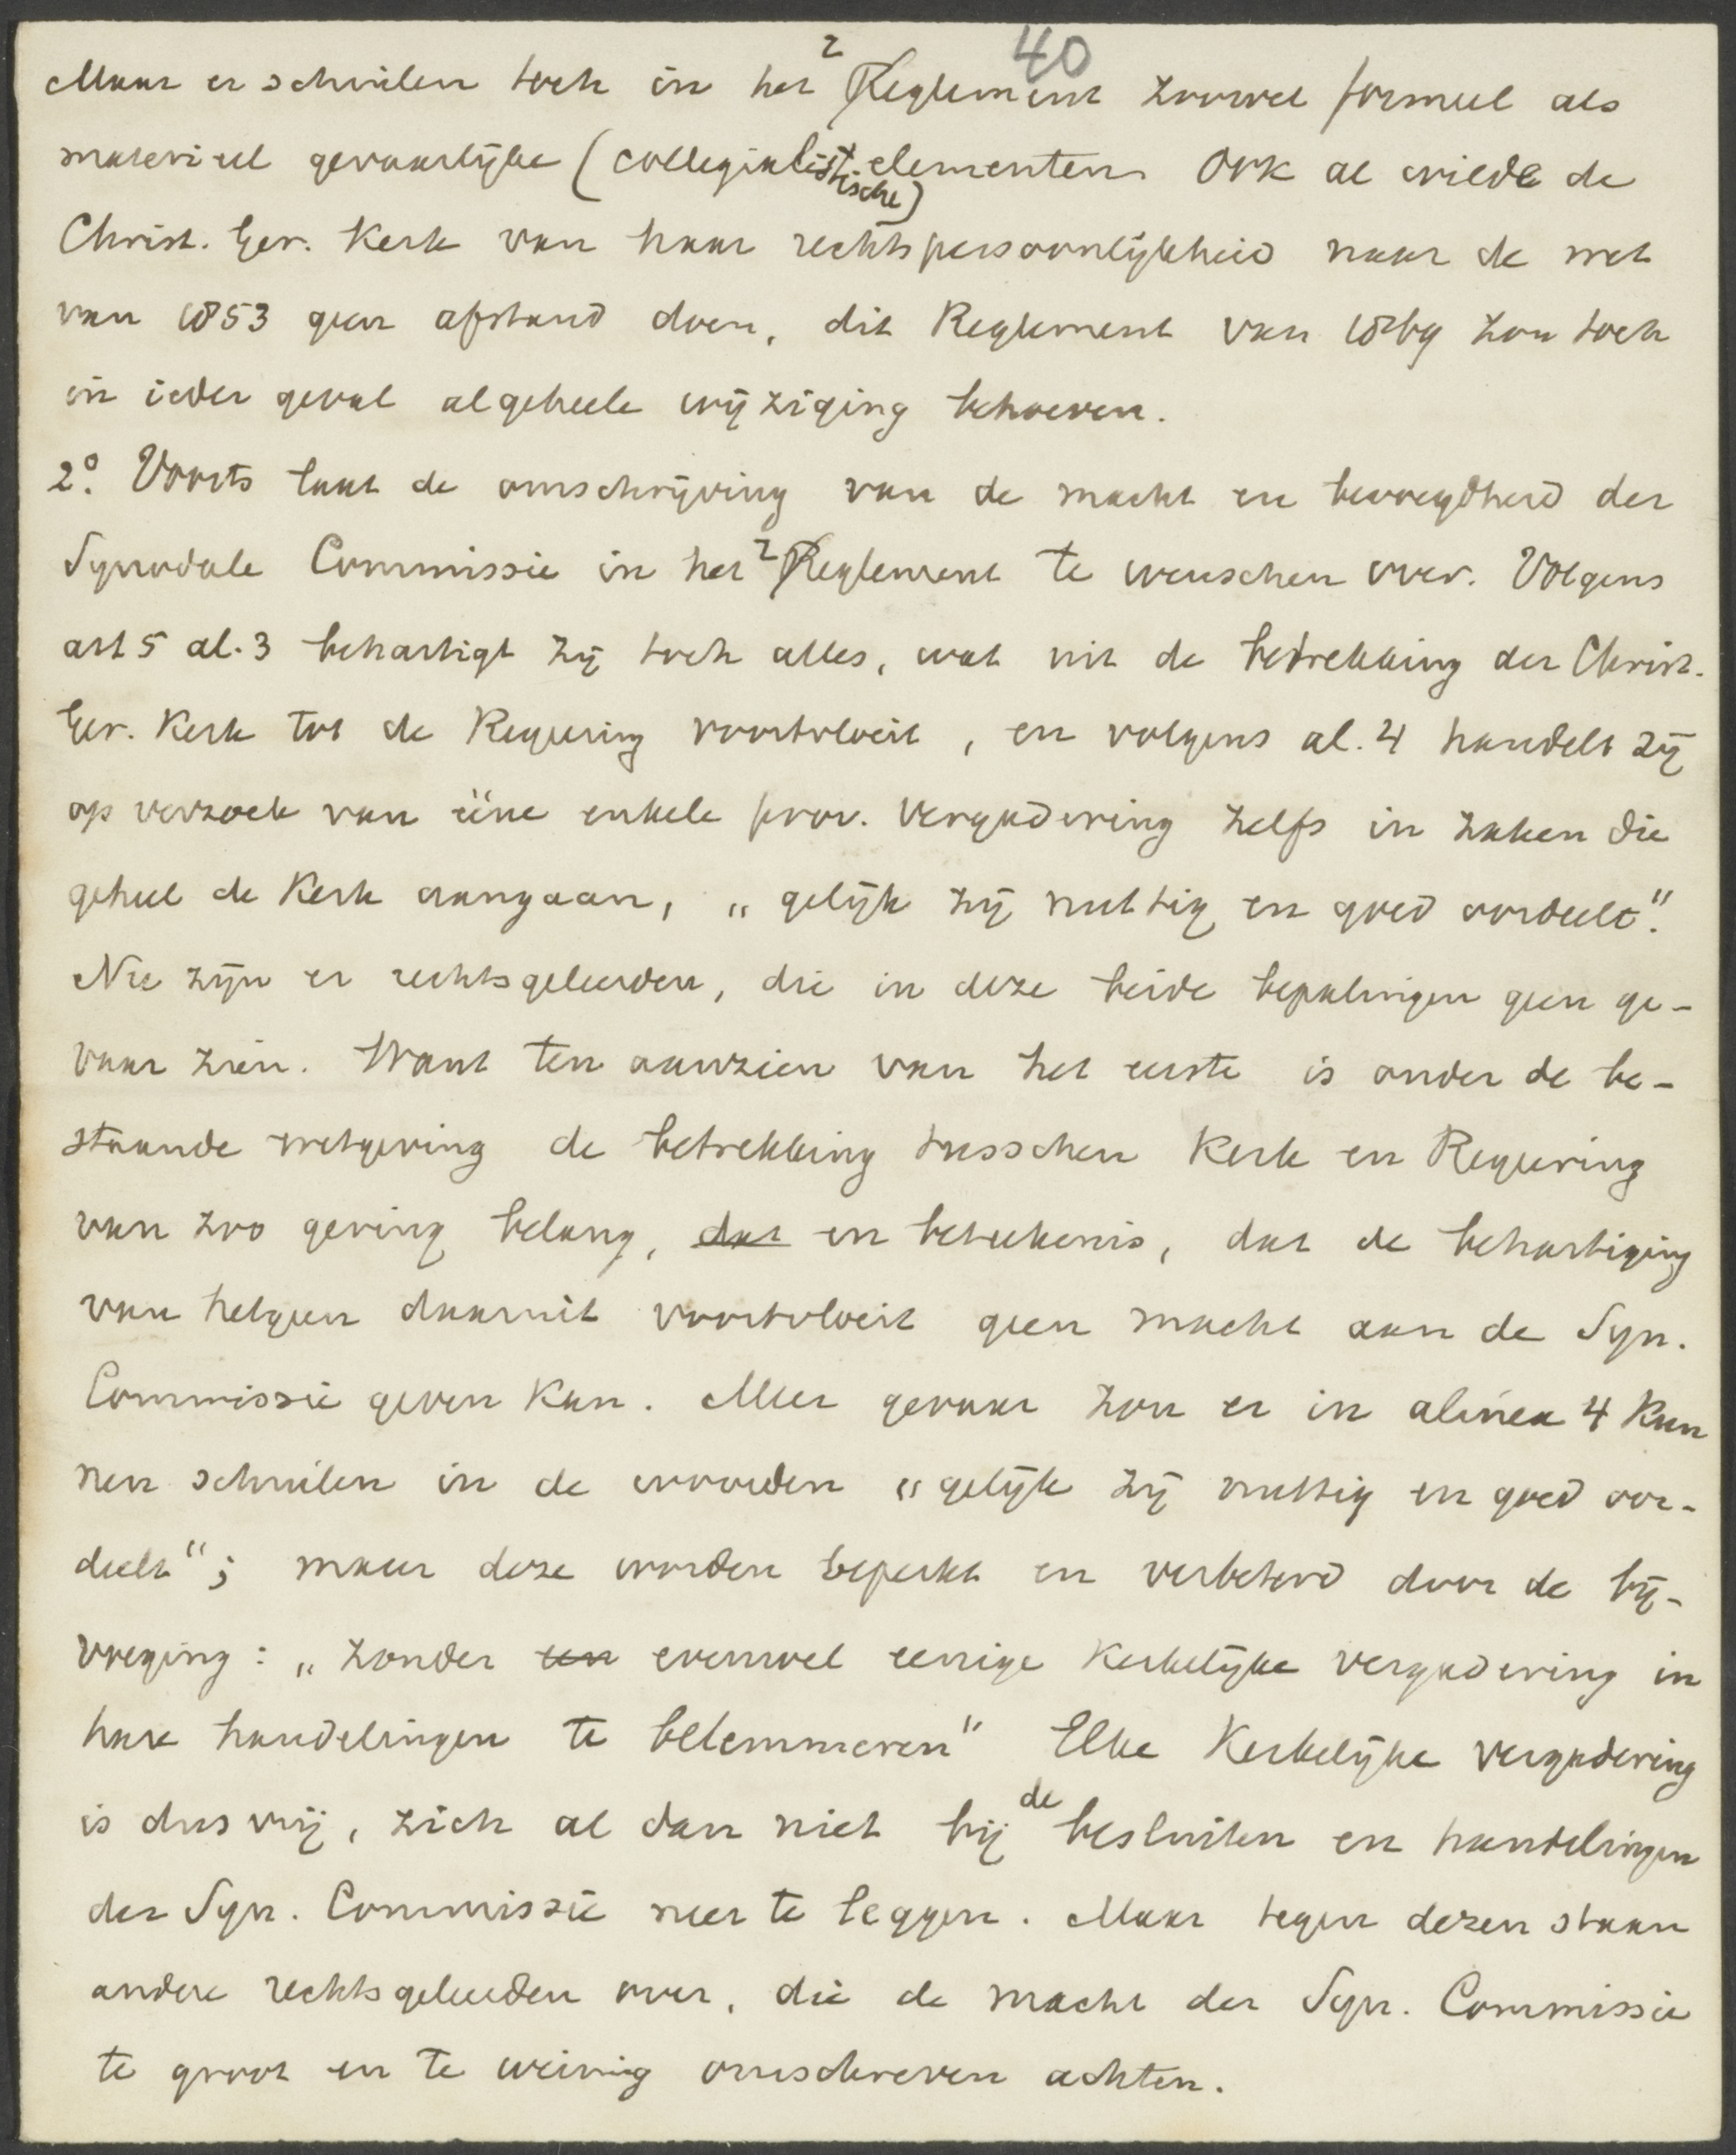 40
Maar er schuilen toch in het ² Reglement zoowel formeel als
materieel gevaarlijke (collegialistische) elementen Ook al wilde de
Christ. Ger. Kerk van haar rechtspersoonlijkheid naar de wet
van 1853 geen afstand doen, dit Reglement van 1869 zou toch
in ieder geval algeheele wijziging behoeven.
2º. Voorts laat de omschrijving van de macht en bevoegdheid der
Synodale Commissie in het ² Reglement te wenschen over. Volgens
art 5 al. 3 behartigt zij toch alles, wat uit de betrekking der Christ.
Ger. Kerk tot de Regeering voortvloeit, en volgens al. 4 handelt zij
op verzoek van ééne enkele prov. vergadering zelfs in zaken die
geheel de Kerk aangaan, „gelijk zij nuttig en goed oordeelt."
Nu zijn er rechtsgeleerden, die in deze beide bepalingen geen ge-
vaar zien. Want ten aanzien van het eerste is onder de be-
staande wetgeving de betrekking tusschen Kerk en Regeering
van zoo gering belang, dat en beteekenis, dat de behartiging
van hetgeen daaruit voortvloeit geen macht aan de Syn.
Commissie geven kan. Meer gevaar zou er in alinea 4 kun
nen schuilen in de woorden „gelijk zij nuttig en goed oor-
deelt"; maar deze worden beperkt en verbeterd door de bij-
voeging: „zonder een evenwel eenige Kerkelijke vergadering in
hare handelingen te belemmeren" Elke Kerkelijke vergadering
is dus vrij, zich al dan niet bij de besluiten en handelingen
der Syn. Commissie neer te leggen. Maar tegen dezen staan
andere rechtsgeleerden over, die de macht der Syn. Commissie
te groot en te weinig omschreven achten.